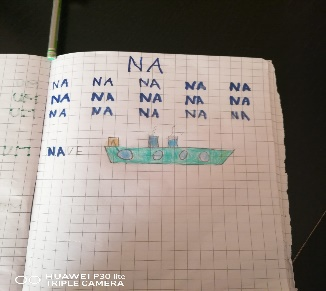 NA
NA NA NA NA NA
NA NA NA NA NA
NA NA NA NA NA
NAVE
HUAWEI P30 lite
TRIPLE CAMERA